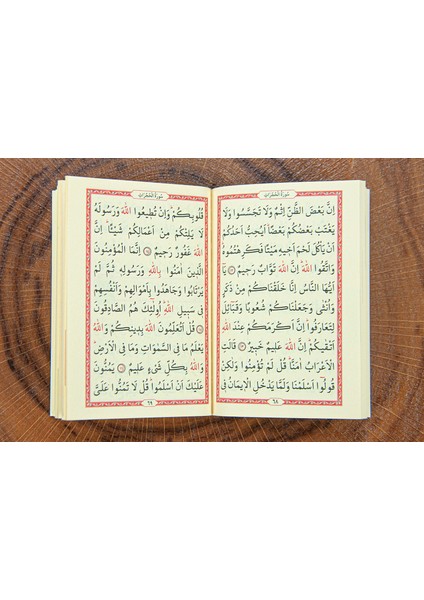 سُورَةُ الْحُجُرَاتِ
اِنَّ بَعْضَ الظَّنِّ اِثْمٌ وَلَا تَجَسَّسُوا وَلَا
يَغْتَبْ بَعْضُكُمْ بَعْضًا اَيُحِبُّ اَحَدُكُمْ
اَنْ يَأْكُلَ لَحْمَ اَخِيهِ مَيْتًا فَكَرِهْتُمُوهُ
وَاتَّقُوا اللّٰهَ اِنَّ اللّٰهَ تَوَّابٌ رَحِيمٌ ﴿١٢﴾ يَا
اَيُّهَا النَّاسُ اِنَّا خَلَقْنَاكُمْ مِنْ ذَكَرٍ
وَاُنْثٰى وَجَعَلْنَاكُمْ شُعُوبًا وَقَبَائِلَ
لِتَعَارَفُوا اِنَّ اَكْرَمَكُمْ عِنْدَ اللّٰهِ
اَتْقٰيكُمْ اِنَّ اللّٰهَ عَلِيمٌ خَبِيرٌ ﴿١٣﴾ قَالَتِ
الْاَعْرَابُ اٰمَنَّا قُلْ لَمْ تُؤْمِنُوا وَلٰكِنْ
قُولُوا اَسْلَمْنَا وَلَمَّا يَدْخُلِ الْاِيمَانُ فِى
٦٨
سُورَةُ الْحُجُرَاتِ
قُلُوبِكُمْ وَاِنْ تُطِيعُوا اللّٰهَ وَرَسُولَهُ
لَا يَلِتْكُمْ مِنْ اَعْمَالِكُمْ شَيْئًا اِنَّ
اللّٰهَ غَفُورٌ رَحِيمٌ ﴿١٤﴾ اِنَّمَا الْمُؤْمِنُونَ
الَّذِينَ اٰمَنُوا بِاللّٰهِ وَرَسُولِهِ ثُمَّ لَمْ
يَرْتَابُوا وَجَاهَدُوا بِاَمْوَالِهِمْ وَاَنْفُسِهِمْ
فِى سَبِيلِ اللّٰهِ اُولٰئِكَ هُمُ الصَّادِقُونَ
﴿١٥﴾ قُلْ اَتُعَلِّمُونَ اللّٰهَ بِدِينِكُمْ وَاللّٰهُ
يَعْلَمُ مَا فِى السَّمٰوَاتِ وَمَا فِى الْاَرْضِ
وَاللّٰهُ بِكُلِّ شَىْءٍ عَلِيمٌ ﴿١٦﴾ يَمُنُّونَ
عَلَيْكَ اَنْ اَسْلَمُوا قُلْ لَا تَمُنُّوا عَلَىَّ
٦٩